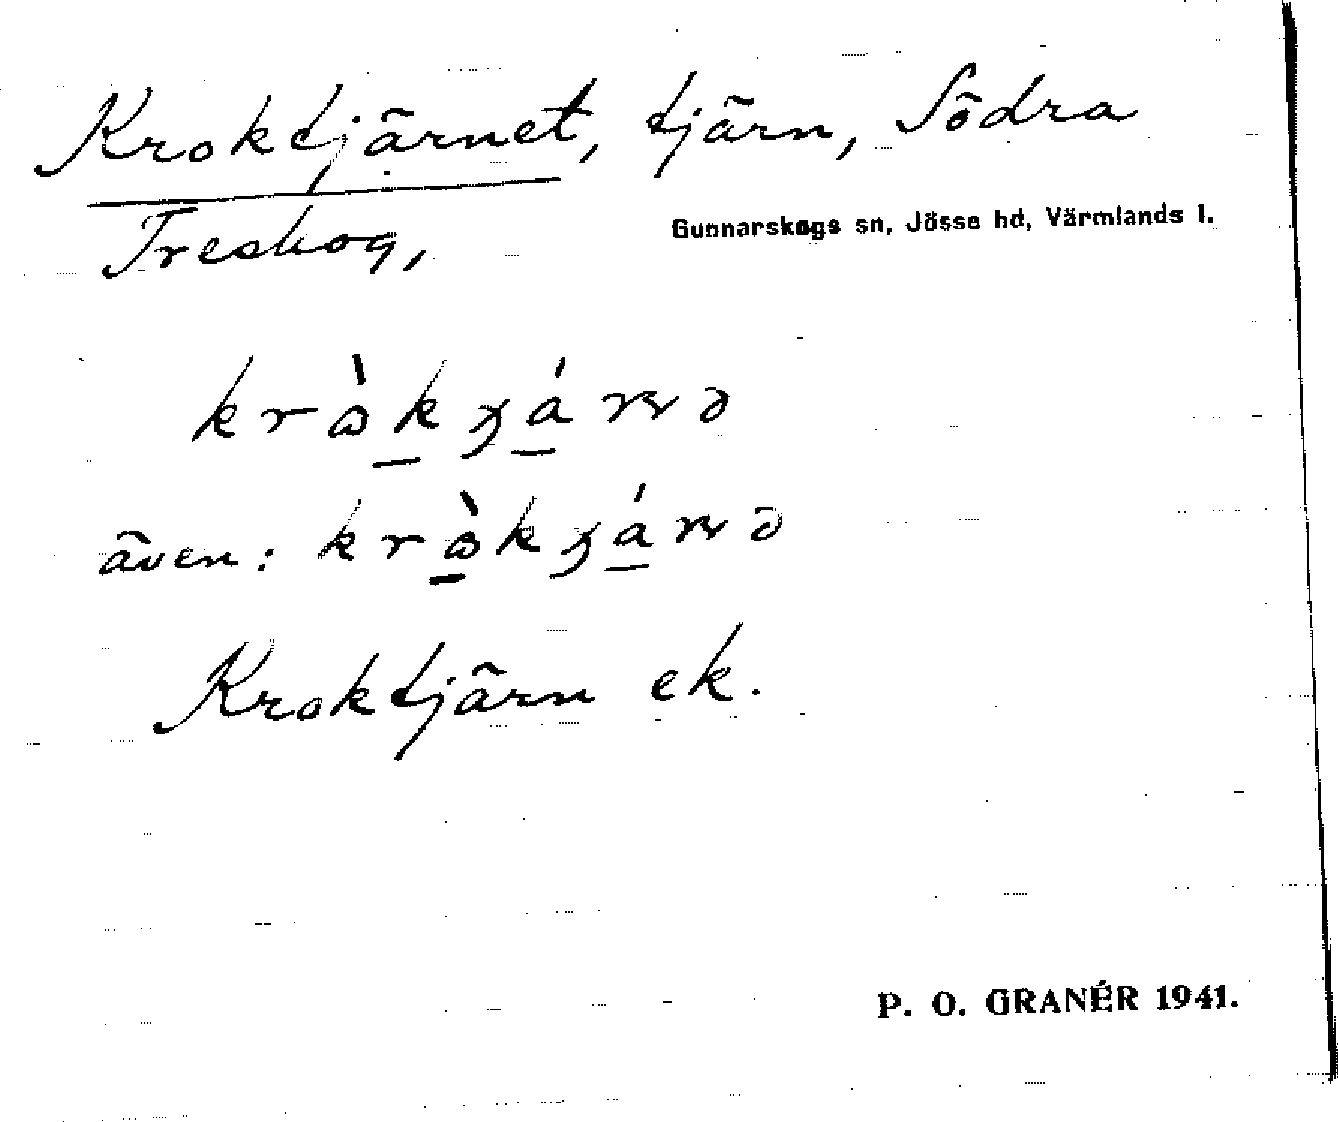 Kroktjärnet, tjärn, Södra
Treskog,
Gunnarskogs sn, Jösse hd, Värmlands l.
även:
Kroktjärn ek.
P. O. GRANÉR 1941.